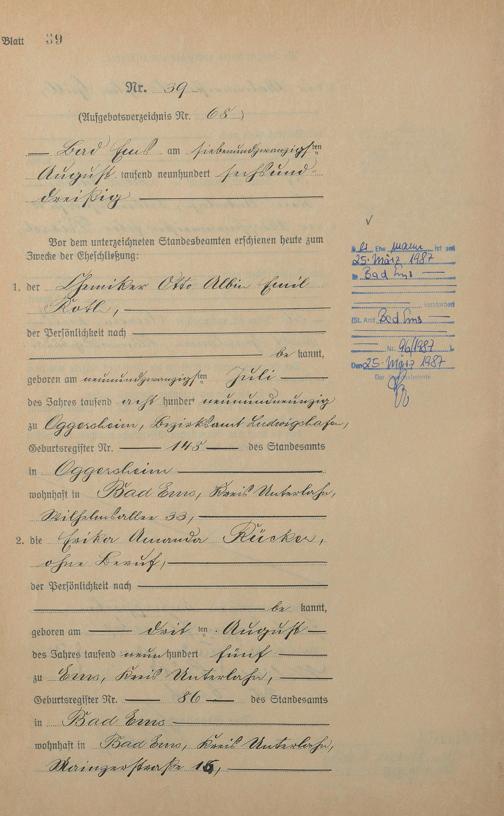 Blatt 39
Nr. 39
(Aufgebotsverzeichnis Nr. 65)
Bad Ems am siebenundzwanzigsten
August tausend neunhundert sechsund-
dreißig
Vor dem unterzeichneten Standesbeamten erschienen heute zum
Zwecke der Eheschließung:
1. der Chemiker Otto Albin Emil
der Persönlichkeit nach
be kannt,
geboren am neunundzwanzigsten Juli
des Jahres tausend acht hundert neunundneunzig
zu Oggersheim, Bezirksamt Ludwigshafen,
Geburtsregister Nr. 145 des Standesamts
in Oggersheim
wohnhaft in Bad Ems, Kreis Unterlahn,
Wilhelmsallee 33,
2. die Erika Amanda Rücker,
ohne Beruf,
der Persönlichkeit nach
be kannt,
geboren am dritten August
des Jahres tausend neunhundert fünf
zu Ems, Kreis Unterlahn,
Geburtsregister Nr. 86 des Standesamts
in Bad Ems
wohnhaft in Bad Ems, Kreis Unterlahn,
Mainzerstraße 16,
Ehe mann ist am
25. März 1987
in Bad Ems
verstorben
(St. Amt Bad Ems
Nr. 96/1987
Den 25. März 1987
Der Standesbeamte